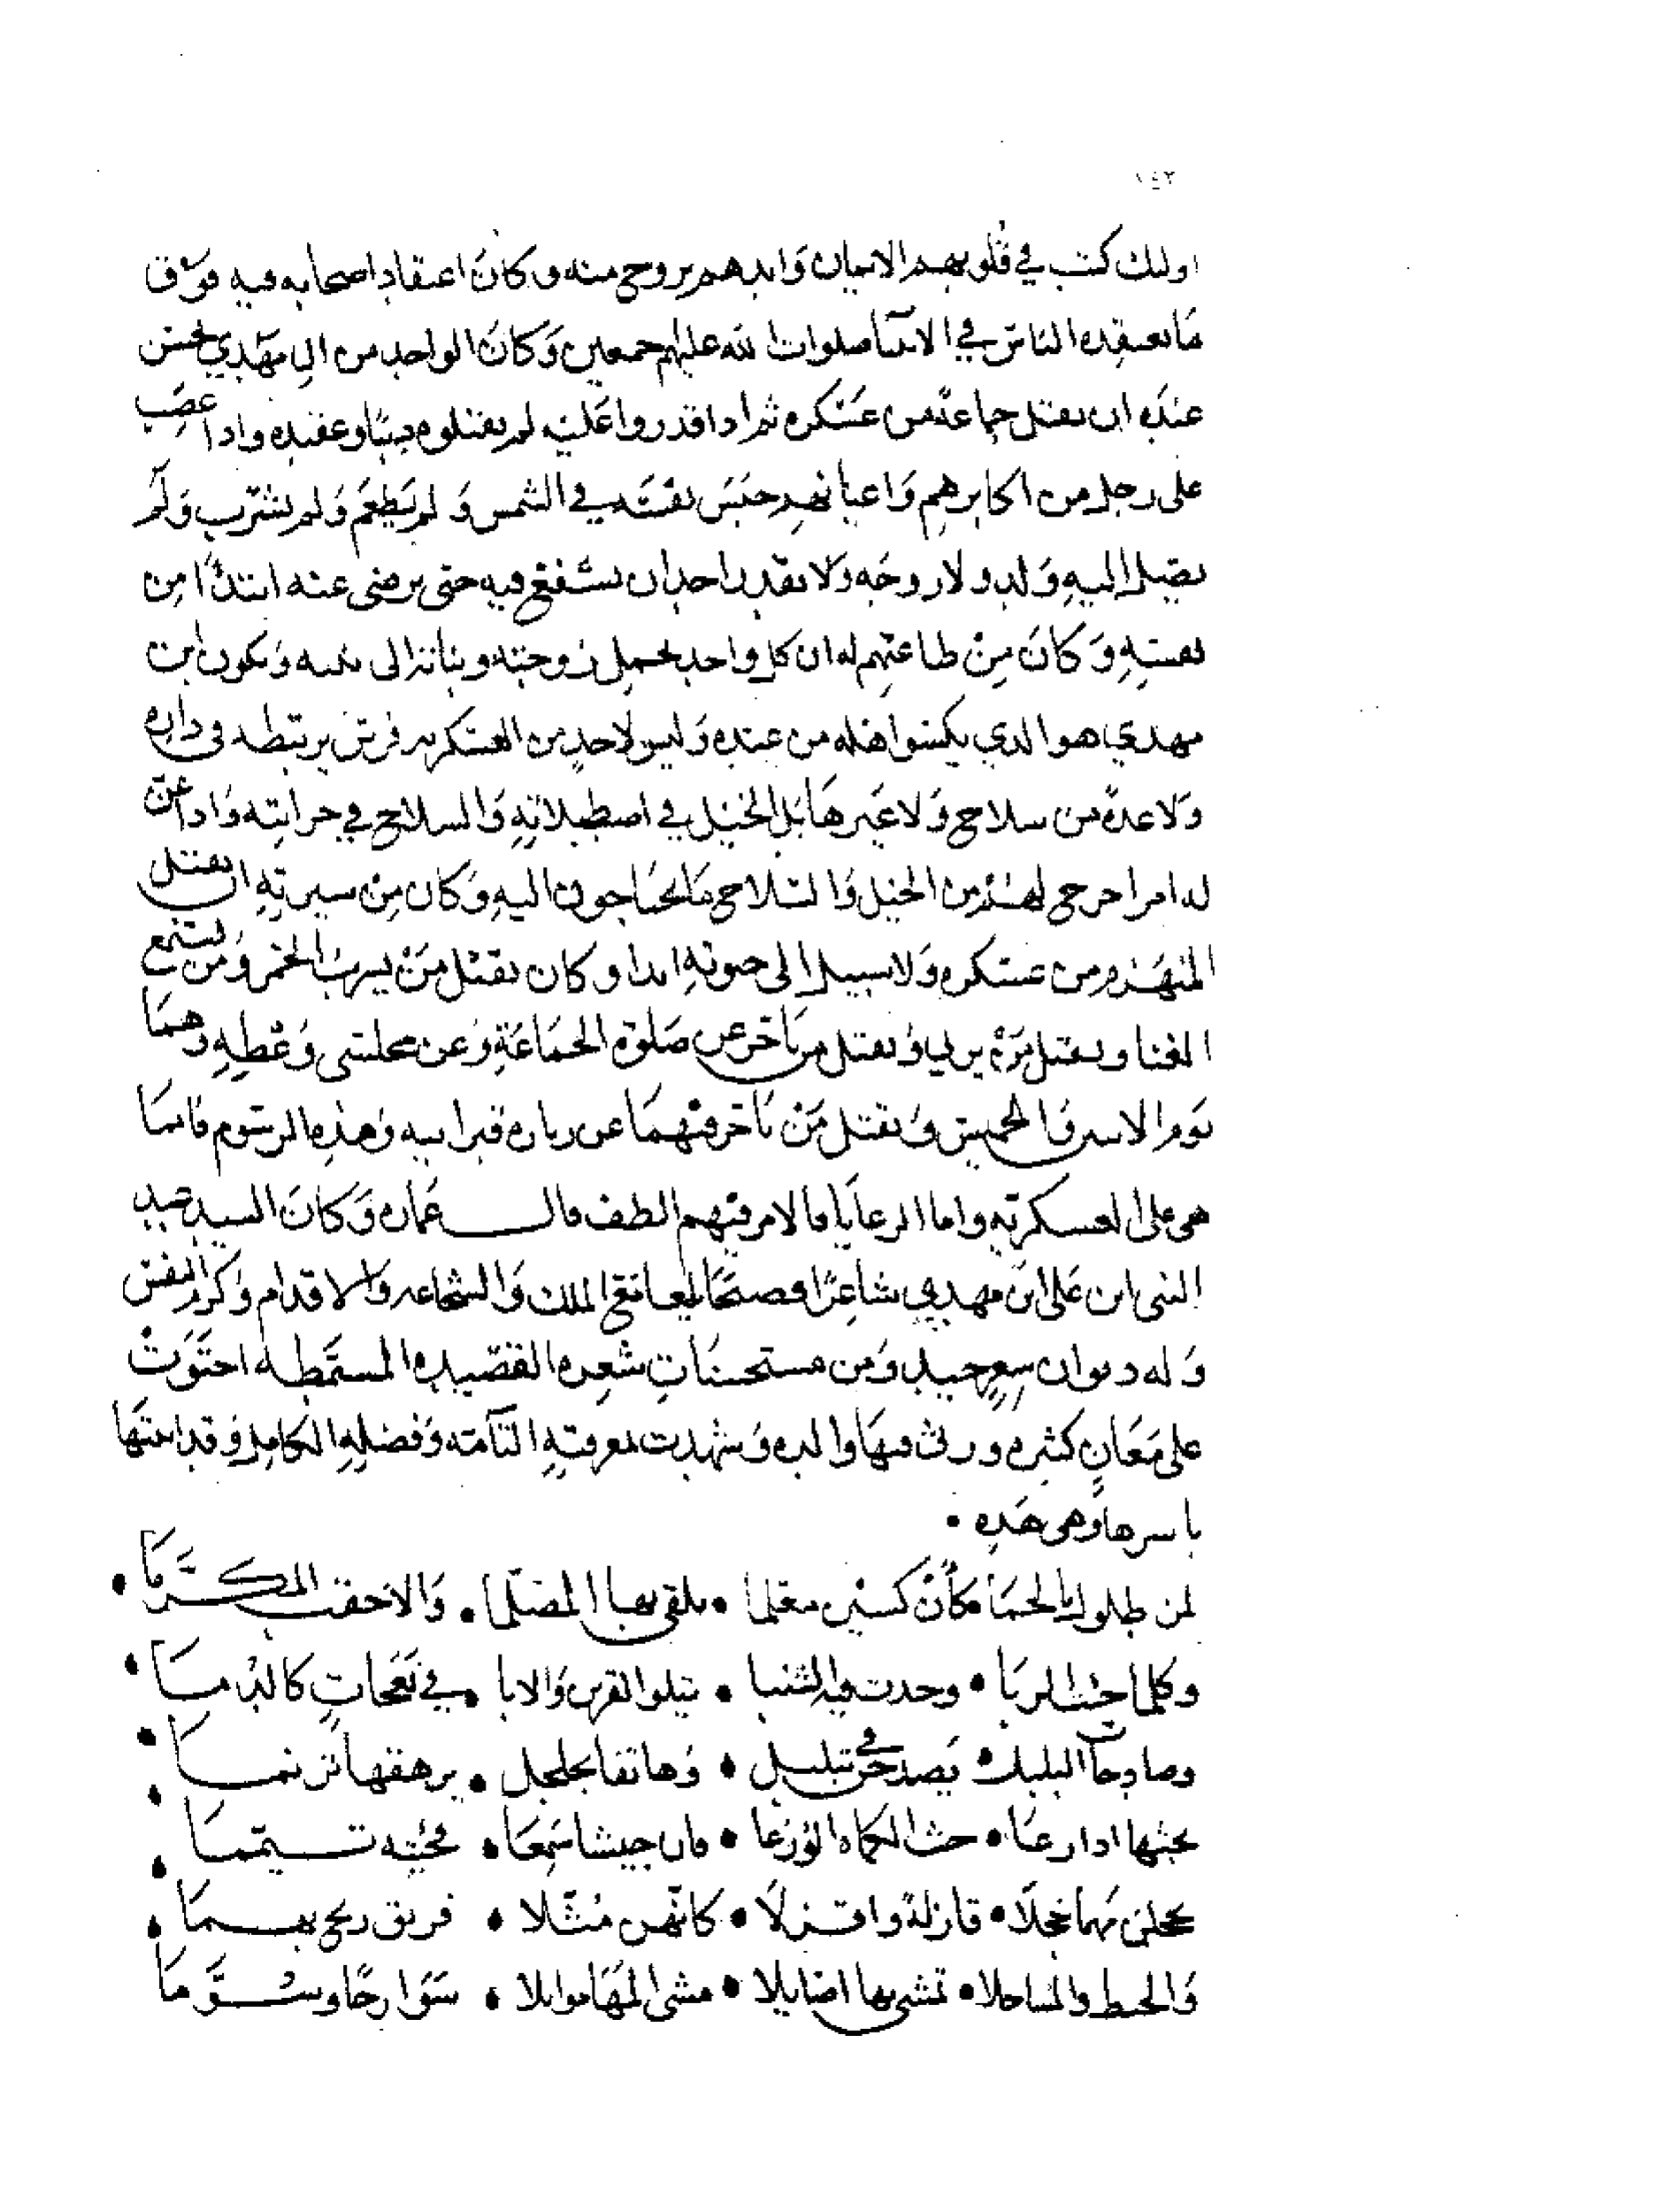 ١٤٣
اولئك كتب في قلوبهم الايمان وَايدهم بروح منه وكانَ اعتقاد اصحابه فيه فوق
مَا يعتقده الناس في الانبيآ صلوات الله عليهم جمعين وَكانَ الواحد من ال مهدي يحسن
عندَه ان يقتل جماعة من عَسْكره ثم اذا قدروا عَليْه لم يقتلوه دينًا وعقيده واذا غضب
على رجل من اكابرهم وَاعيانهم حبَس نفسَه في الشمس وَلم يَطعَم وَلم يشرَب وَلم
يصِل اليهِ وَلد ولا زوجَه وَلا يقدر احد ان يشفع فيه حتى يرضى عنه ابتدًا مِن
نفسِهِ وَكانَ مِنْ طاعتهم له ان كل واحد يحمل زوجته وبناته الى بيته وَيكون ابن
مهدي هو الذي يكسوا اهله من عنده وَليس لاحدٍ من العسكريه فرس يرتبطه في داره
وَلا عدة من سلاح وَلا غيرها بَل الخيْل في اصطبلاتِهِ وَالسلاح في خزانته وَاذا عنّ
له امرا خرج لهم من الخيل وَالسلاح مَا يحتاجون اليهِ وَكان مِن سيرتِهِ ان يقتل
المنهَزم من عسكره وَلا سبيل الى حيوته ابدا وكان يقتل مَنْ يشرب الخمر وَمن يستمع
الغنا ويقتل مَنْ يزني وَيقتل من تاخر عن صَلوة الجمَاعَةِ وَعن مجلسى وَعْظِهِ وَهمَا
يَوم الاثنين وَالخميس وَيقتل مَنْ تَاخر فيْهمَا عن زيارة قبر ابيه وَهذهِ الرسوم فانما
هي على العسكريّه واما الرعايَا فالامر فيْهم الطف قال عمَاره وَكانَ السيد عبد
النبى ابن عَلى ابن مهدي شاعِرًا فصيحًا ليعا مع الملك وَالشجاعه والاقدام وَكرَم النفس
وَله ديوان شعرٍ جيد وَمن مستحسَنَاتِ شعره القصيده المسمَّطه احتَوَتْ
على مَعَانٍ كثيره ورثى فيهَا والده وَشهدت بمعرفتِهِ التآمّه وَفضلِهِ الكامِل وَقد اثبتها
باسرها وَهى هَذِه •
لمن طلول بالحمَا كَأنْ كسين معلما • يلقى بها المصلّما • وَالاخقب المكدَّمَا •
وكلما جئت الربَا • وجدت فيْه الشنبا • يتلوا القرين وَالابا • في نَعَجاتٍ كالدُمَا •
وصادحآت البلبل • يَصدحْن في تبلبل • وَهاتفا بجلجل • يرهقها ترنمَا •
يحثها اذا رعَا • حث الحمَاه الوُزعَا • فان جيشا سَمِعَا • تيممَا •
كانّهن مُثّلا • فريق ريح
وَالخيط والمساحلا • تمشي بها اصايلا • مشى المَهَا موايلا • سَوَارحًا وسُوَّمَا